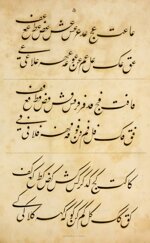 عا عت عج عد عر عس عش عص عط عع عف
عق عک عل عم عن عو عه علا عی
فا فت فج فد فر فس فش فص فط فع فف
فق فک فل فم فن فو فه فلا فی
کا کت کج کد کر کس کش کص کط کع کف
کق کک کل کم کن کو که کلا کی